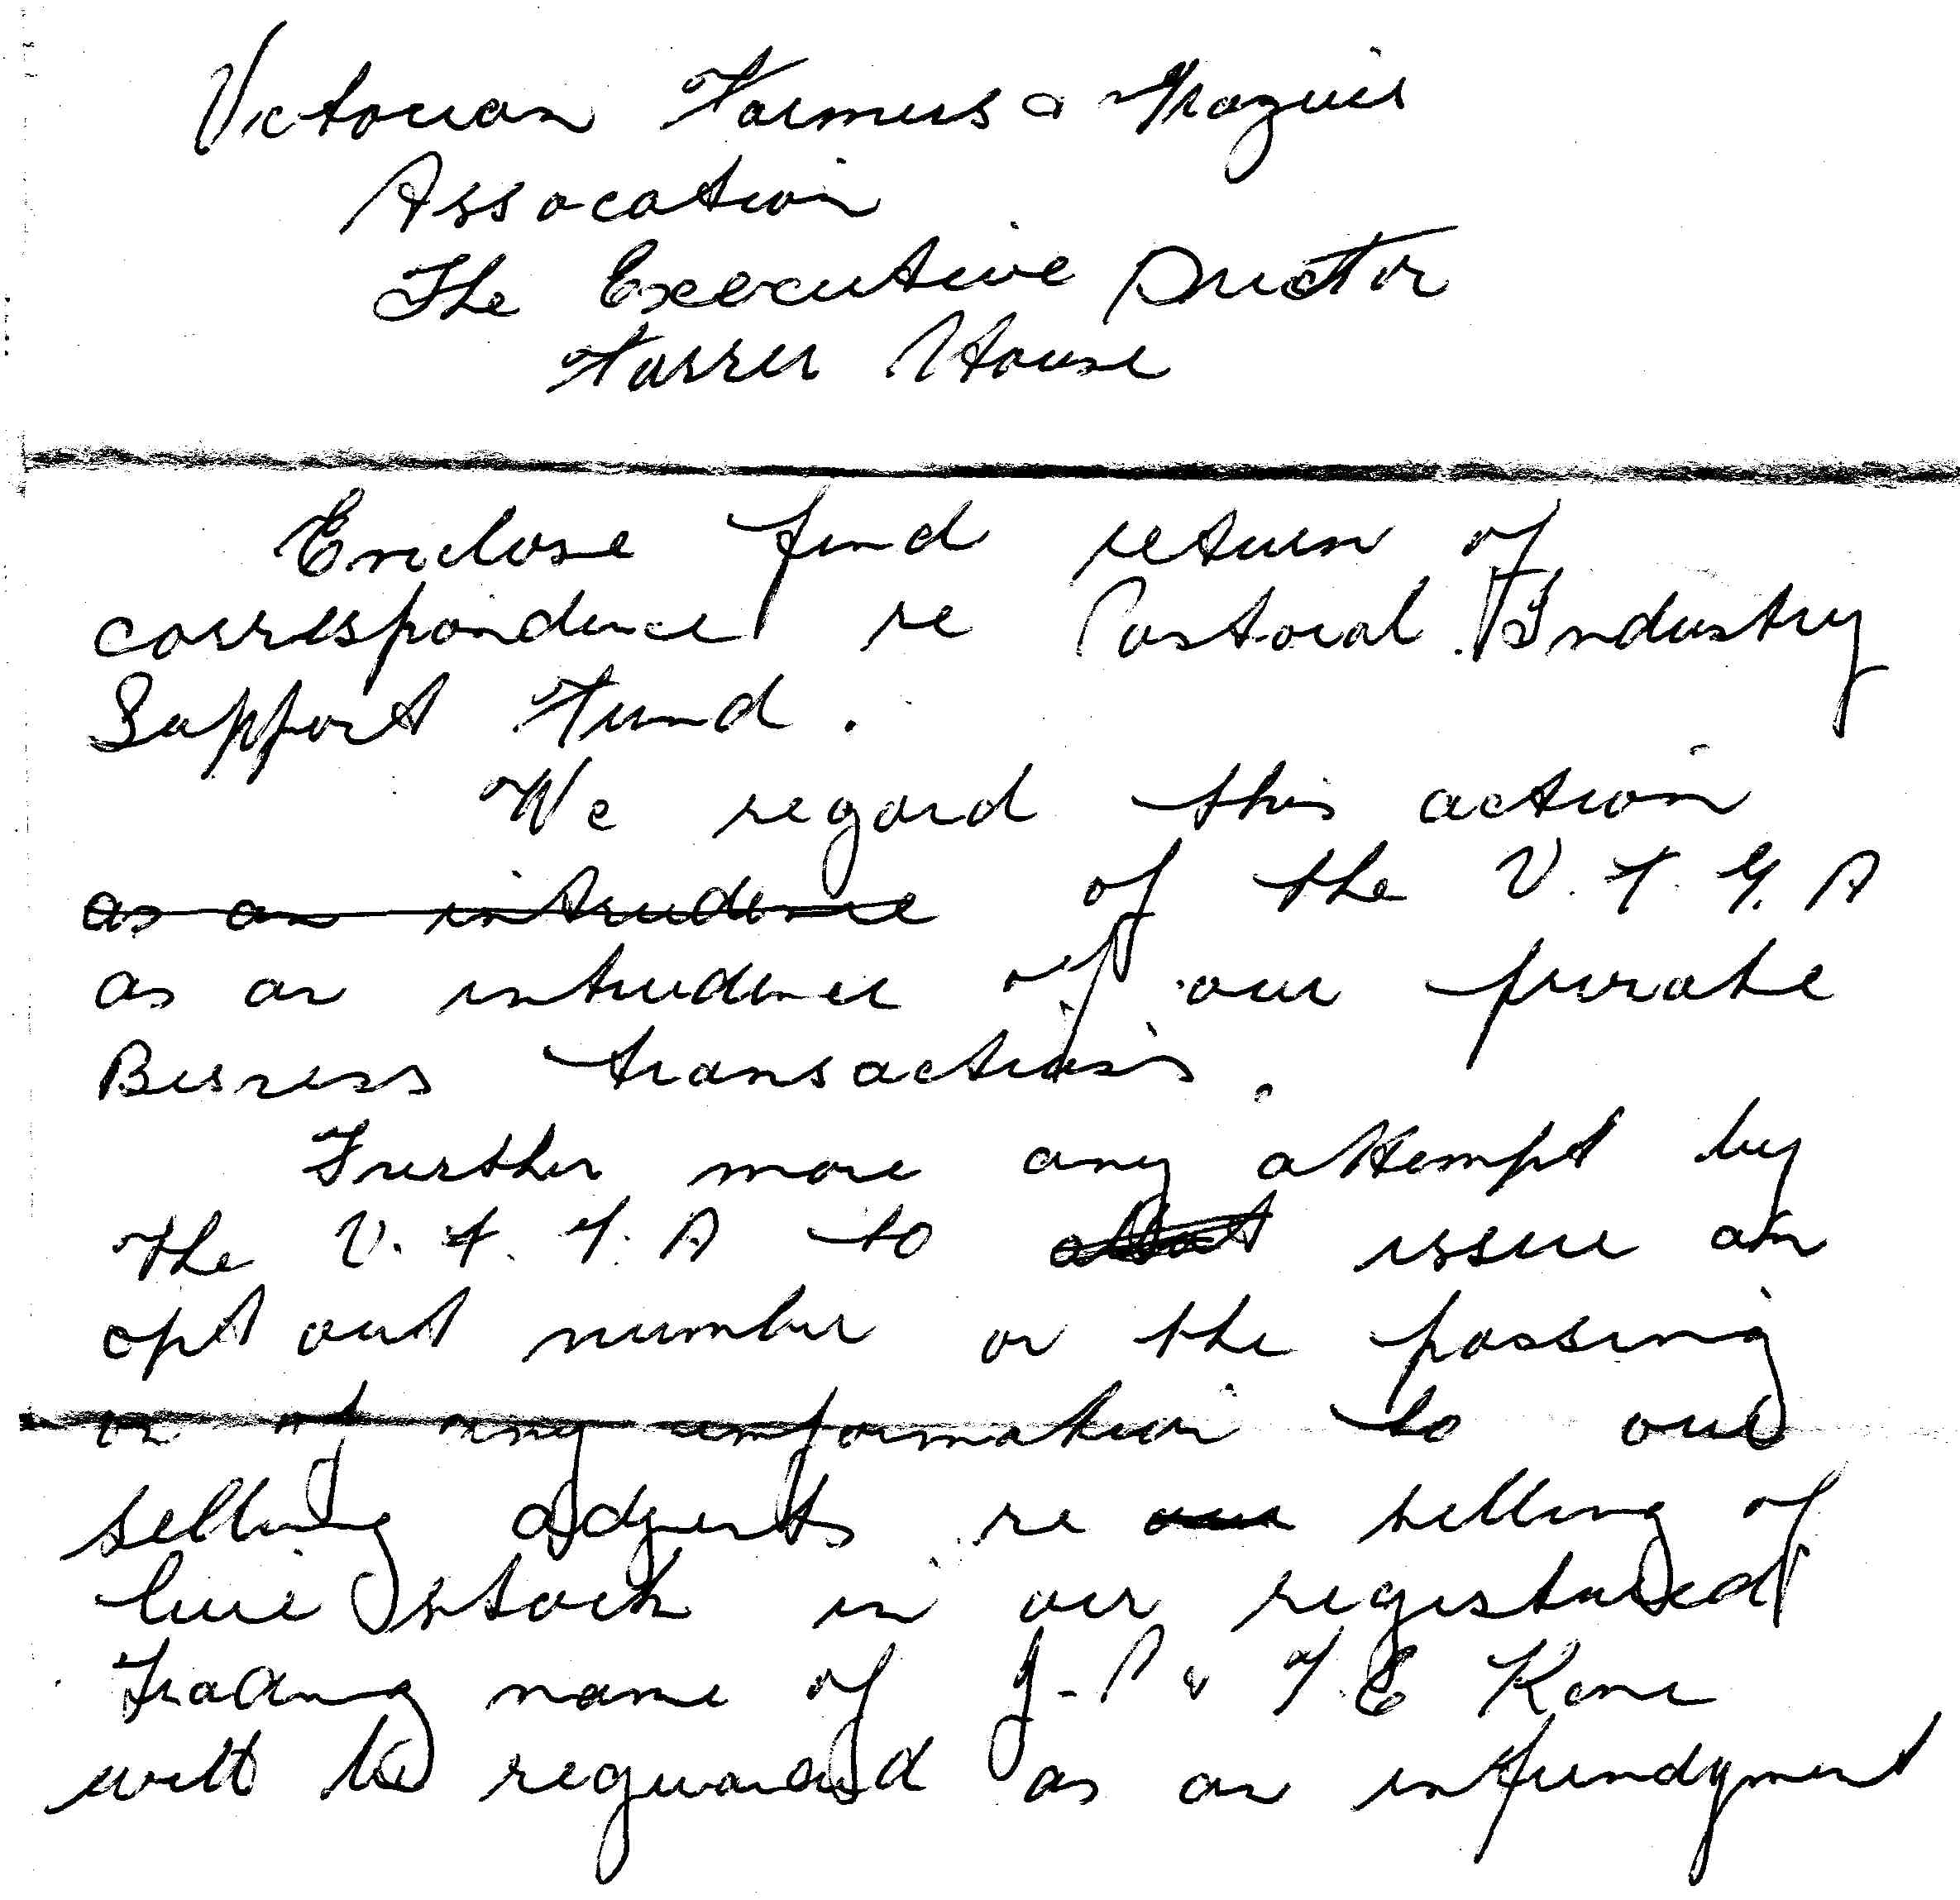 Victorian Farmers & Grazies
Assocation
The Executive Director
Farrer House
Enclose find return of
correspondence re Pastoral Industry
Support Fund.
We regard this action
as an intrudence of the V. F. G. A
as an intrudence of our private
Busness transactions.
Further more any attempt by
the V. F. G. A to issue an
opt out number or the passing
on of any information to our
selling adgents re our selling of
live stock in our registured
Trading name of J. P & T. E Kane
will be reguarded as an infundgment